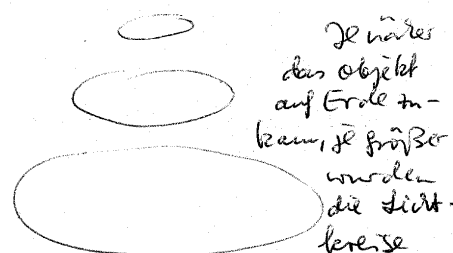 Je näher
das Objekt
auf Erde zu-
kam, je größer
wurden
die Licht-
kreise